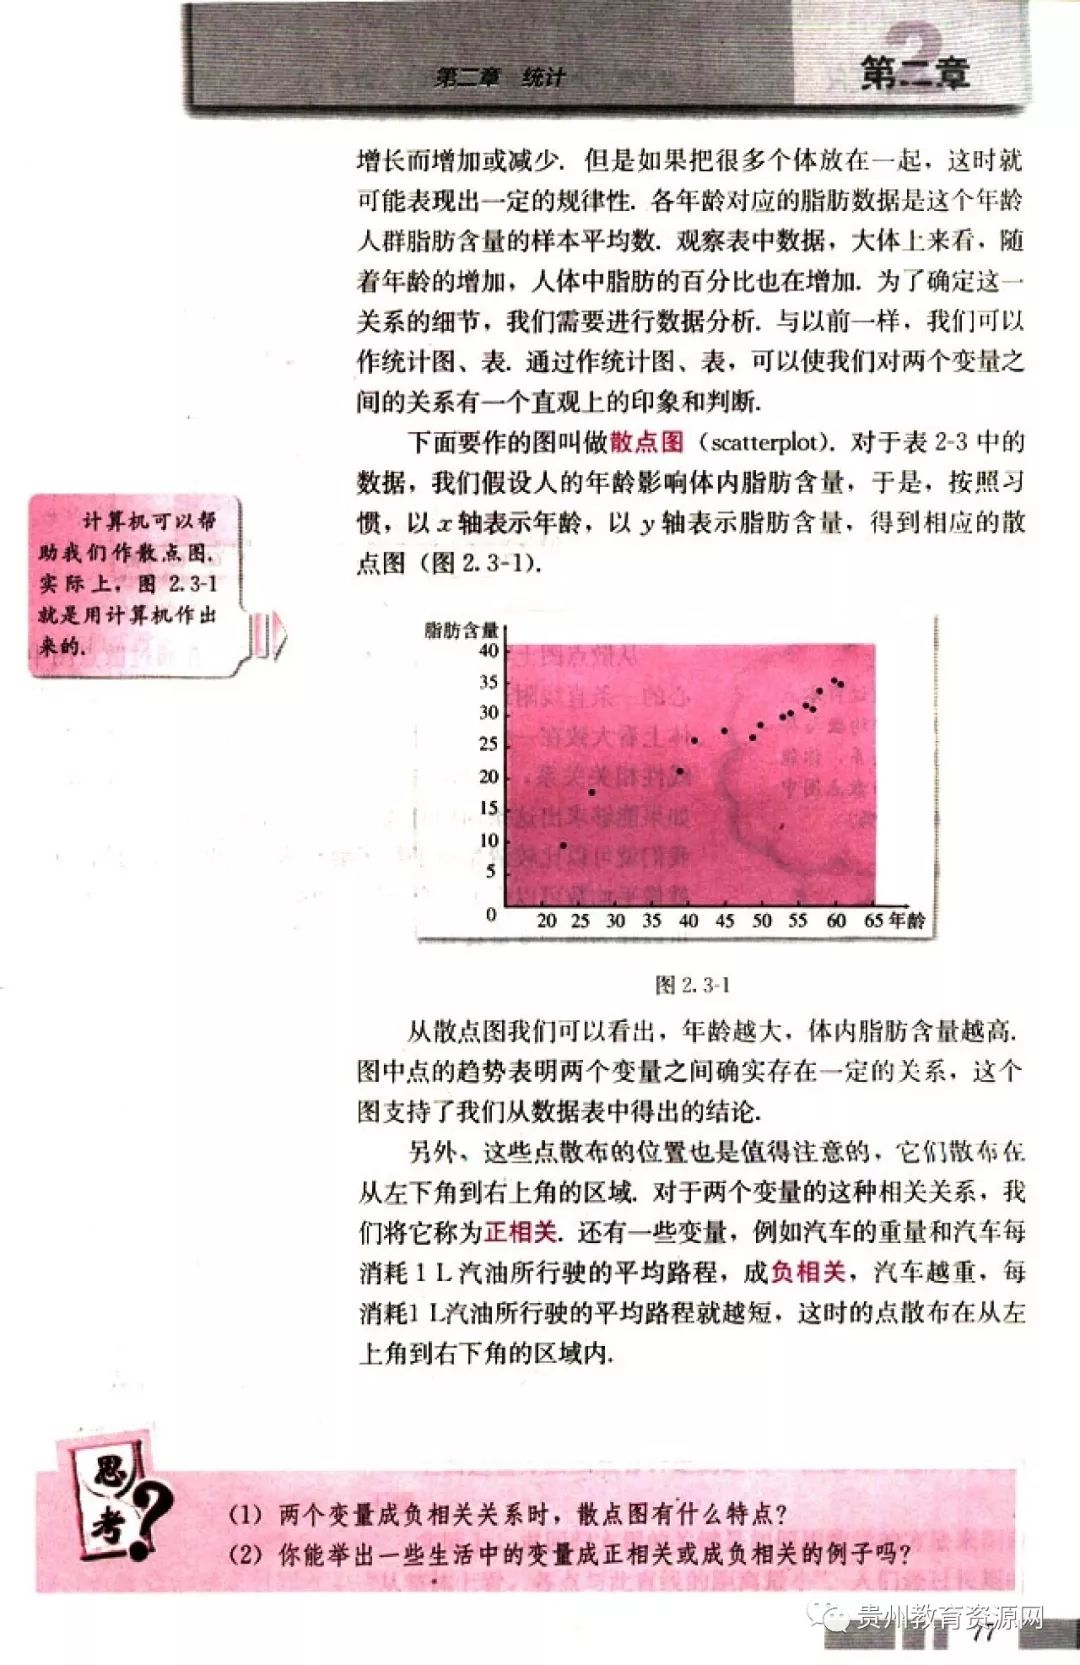 第二章 统计
第二章
增长而增加或减少. 但是如果把很多个体放在一起, 这时就
可能表现出一定的规律性. 各年龄对应的脂肪数据是这个年龄
人群脂肪含量的样本平均数. 观察表中数据, 大体上来看, 随
着年龄的增加, 人体中脂肪的百分比也在增加. 为了确定这一
关系的细节, 我们需要进行数据分析. 与以前一样, 我们可以
作统计图、表. 通过作统计图、表, 可以使我们对两个变量之
间的关系有一个直观上的印象和判断.
下面要作的图叫做散点图 (scatterplot). 对于表 2-3 中的
数据, 我们假设人的年龄影响体内脂肪含量, 于是, 按照习
惯, 以 x 轴表示年龄, 以 y 轴表示脂肪含量, 得到相应的散
点图 (图 2.3-1).
计算机可以帮
助我们作散点图.
实际上, 图 2.3-1
就是用计算机作出
来的.
脂肪含量
40
35
30
25
20
15
10
5
0
20 25 30 35 40 45 50 55 60 65 年龄
图 2.3-1
从散点图我们可以看出, 年龄越大, 体内脂肪含量越高.
图中点的趋势表明两个变量之间确实存在一定的关系, 这个
图支持了我们从数据表中得出的结论.
另外、这些点散布的位置也是值得注意的, 它们散布在
从左下角到右上角的区域. 对于两个变量的这种相关关系, 我
们将它称为正相关. 还有一些变量, 例如汽车的重量和汽车每
消耗 1 L 汽油所行驶的平均路程, 成负相关, 汽车越重, 每
消耗1 L汽油所行驶的平均路程就越短, 这时的点散布在从左
上角到右下角的区域内.
思考?
(1) 两个变量成负相关关系时, 散点图有什么特点?
(2) 你能举出一些生活中的变量成正相关或成负相关的例子吗?
贵州教育资源网
77